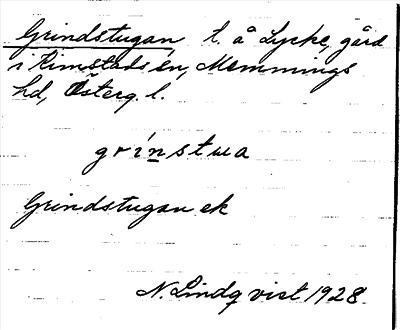 Grindstugan, t. å Lycke, gård
i Rimstads sn, Memmings
hd, Österg. l.
grínstwa
Grindstugan ek
N. Lindqvist 1928.